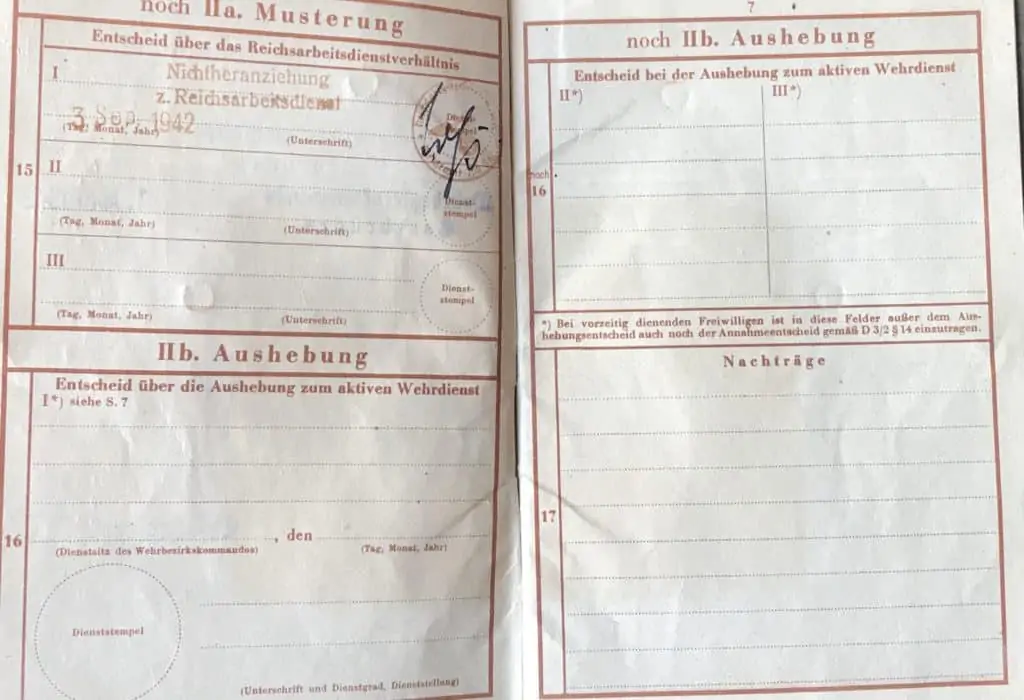 noch IIa. Musterung
Entscheid über das Reichsarbeitsdienstverhältnis
I
Nichtheranziehung
z. Reichsarbeitsdienst
3. Sep. 1942
(Tag, Monat, Jahr)
(Unterschrift)
15
II
Dienst-
stempel
(Tag, Monat, Jahr)
(Unterschrift)
III
Dienst-
stempel
(Tag, Monat, Jahr)
(Unterschrift)
IIb. Aushebung
Entscheid über die Aushebung zum aktiven Wehrdienst
I*) siehe S. 7
16
, den
(Dienstsitz des Wehrbezirkskommandos)
(Tag, Monat, Jahr)
Dienststempel
(Unterschrift und Dienstgrad, Dienststellung)
7
noch IIb. Aushebung
Entscheid bei der Aushebung zum aktiven Wehrdienst
II*)
III*)
noch
16
*) Bei vorzeitig dienenden Freiwilligen ist in diese Felder außer dem Aus-
hebungsentscheid auch noch der Annahmeentscheid gemäß D 3/2 § 14 einzutragen.
Nachträge
17